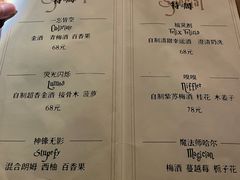 特调
特调
一忘皆空
Oblivious
金酒 青梅酒 百香果
68元
福灵剂
Felix Felicis
自制清甜幸运酒 澄清奶洗
68元
荧光闪烁
Lumos
自制超香金酒 接骨木 菠萝
68元
嗅嗅
Niffler
自制紫苏梅酒 桂花 木姜子
78元
神锋无影
Stupefy
混合朗姆 西柚 百香果
魔法师哈尔
Magician
梅酒 蔓越莓 栀子花